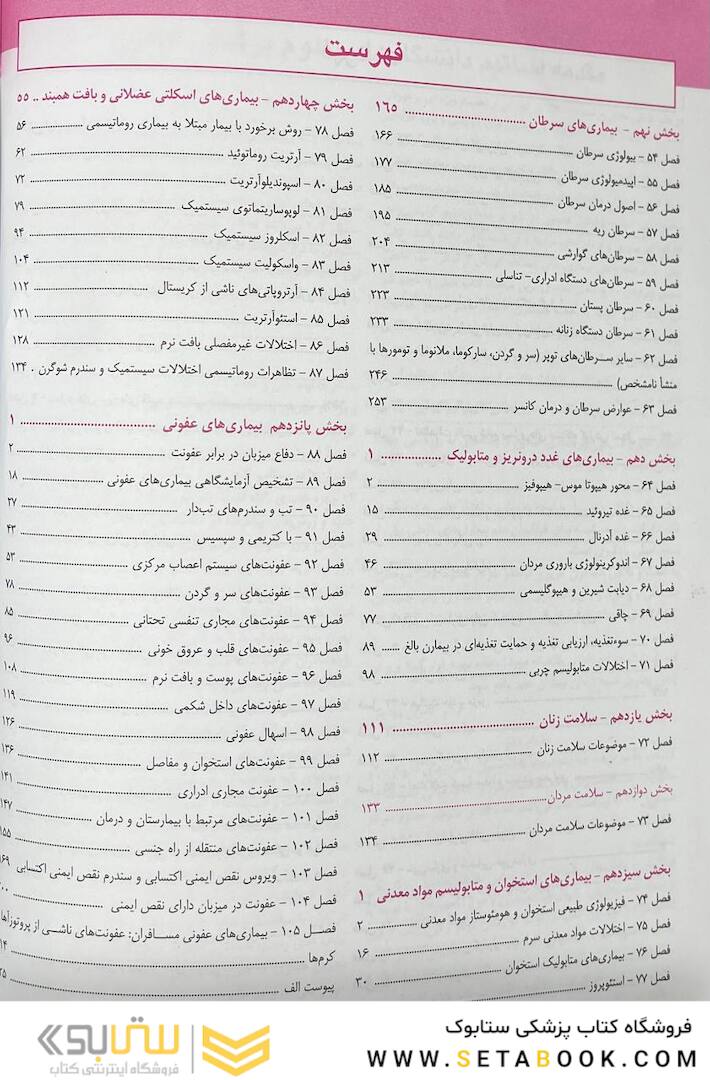 فهرست
بخش نهم - بیماری‌های سرطان ۱۶۵
فصل ۵۴ - بیولوژی سرطان ۱۶۶
فصل ۵۵ - اپیدمیولوژی سرطان ۱۷۷
فصل ۵۶ - اصول درمان سرطان ۱۸۵
فصل ۵۷ - سرطان ریه ۱۹۵
فصل ۵۸ - سرطان‌های گوارشی ۲۰۴
فصل ۵۹ - سرطان‌های دستگاه ادراری- تناسلی ۲۱۳
فصل ۶۰ - سرطان پستان ۲۲۳
فصل ۶۱ - سرطان دستگاه زنانه ۲۳۳
فصل ۶۲ - سایر سرطان‌های توپر (سر و گردن، سارکوما، ملانوما و تومورها با
منشأ نامشخص) ۲۴۶
فصل ۶۳ - عوارض سرطان و درمان کانسر ۲۵۳
بخش دهم - بیماری‌های غدد درون‌ریز و متابولیک ۱
فصل ۶۴ - محور هیپوتا موس- هیپوفیز ۲
فصل ۶۵ - غده تیروئید ۱۵
فصل ۶۶ - غده آدرنال ۲۹
فصل ۶۷ - اندوکرینولوژی باروری مردان ۴۶
فصل ۶۸ - دیابت شیرین و هیپوگلیسمی ۵۳
فصل ۶۹ - چاقی ۷۷
فصل ۷۰ - سوءتغذیه، ارزیابی تغذیه و حمایت تغذیه‌ای در بیمارن بالغ ۸۹
فصل ۷۱ - اختلالات متابولیسم چربی ۹۸
بخش یازدهم - سلامت زنان ۱۱۱
فصل ۷۲ - موضوعات سلامت زنان ۱۱۲
بخش دوازدهم - سلامت مردان ۱۳۳
فصل ۷۳ - موضوعات سلامت مردان ۱۳۴
بخش سیزدهم - بیماری‌های استخوان و متابولیسم مواد معدنی ۱
فصل ۷۴ - فیزیولوژی طبیعی استخوان و هومئوستاز مواد معدنی ۲
فصل ۷۵ - اختلالات مواد معدنی سرم ۱۶
فصل ۷۶ - بیماری‌های متابولیک استخوان ۳۰
فصل ۷۷ - استئوپروز
بخش چهاردهم - بیماری‌های اسکلتی عضلانی و بافت همبند .. ۵۵
فصل ۷۸ - روش برخورد با بیمار مبتلا به بیماری روماتیسمی ۵۶
فصل ۷۹ - آرتریت روماتوئید ۶۲
فصل ۸۰ - اسپوندیلوآرتریت ۷۲
فصل ۸۱ - لوپوس‌اریتماتوی سیستمیک ۷۹
فصل ۸۲ - اسکلروز سیستمیک ۹۴
فصل ۸۳ - واسکولیت سیستمیک ۱۰۴
فصل ۸۴ - آرتروپاتی‌های ناشی از کریستال ۱۱۲
فصل ۸۵ - استئوآرتریت ۱۲۱
فصل ۸۶ - اختلالات غیرمفصلی بافت نرم ۱۲۸
فصل ۸۷ - تظاهرات روماتیسمی اختلالات سیستمیک و سندرم شوگرن . ۱۳۴
بخش پانزدهم بیماری‌های عفونی ۱
فصل ۸۸ - دفاع میزبان در برابر عفونت ۲
فصل ۸۹ - تشخیص آزمایشگاهی بیماری‌های عفونی ۱۸
فصل ۹۰ - تب و سندرم‌های تب‌دار ۲۷
فصل ۹۱ - با کتریمی و سپسیس ۴۳
فصل ۹۲ - عفونت‌های سیستم اعصاب مرکزی ۵۳
فصل ۹۳ - عفونت‌های سر و گردن ۷۸
فصل ۹۴ - عفونت‌های مجاری تنفسی تحتانی ۸۵
فصل ۹۵ - عفونت‌های قلب و عروق خونی ۹۶
فصل ۹۶ - عفونت‌های پوست و بافت نرم ۱۰۸
فصل ۹۷ - عفونت‌های داخل شکمی ۱۱۹
فصل ۹۸ - اسهال عفونی ۱۲۶
فصل ۹۹ - عفونت‌های استخوان و مفاصل ۱۳۶
فصل ۱۰۰ - عفونت مجاری ادراری ۱۴۱
فصل ۱۰۱ - عفونت‌های مرتبط با بیمارستان و درمان ۱۴۷
فصل ۱۰۲ - عفونت‌های منتقله از راه جنسی ۱۵۵
فصل ۱۰۳ - ویروس نقص ایمنی اکتسابی و سندرم نقص ایمنی اکتسابی ۱۶۹
فصل ۱۰۴ - عفونت در میزبان دارای نقص ایمنی
فصل ۱۰۵ - بیماری‌های عفونی مسافران: عفونت‌های ناشی از پروتوزآها
کرم‌ها
پیوست الف
فروشگاه کتاب پزشکی ستابوک
WWW.SETABOOK.COM
ستابوک
فروشگاه اینترنتی کتاب